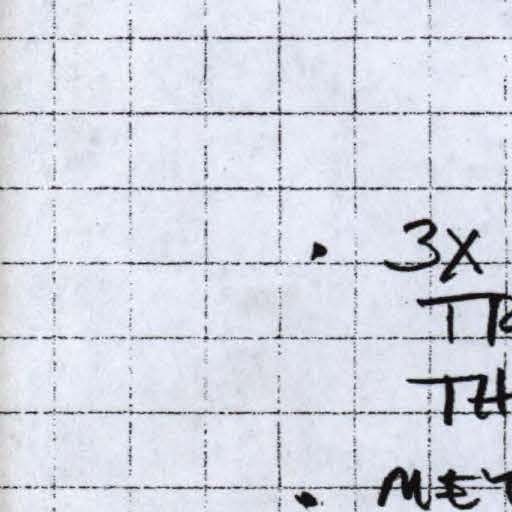 • 3X
TH
• MET